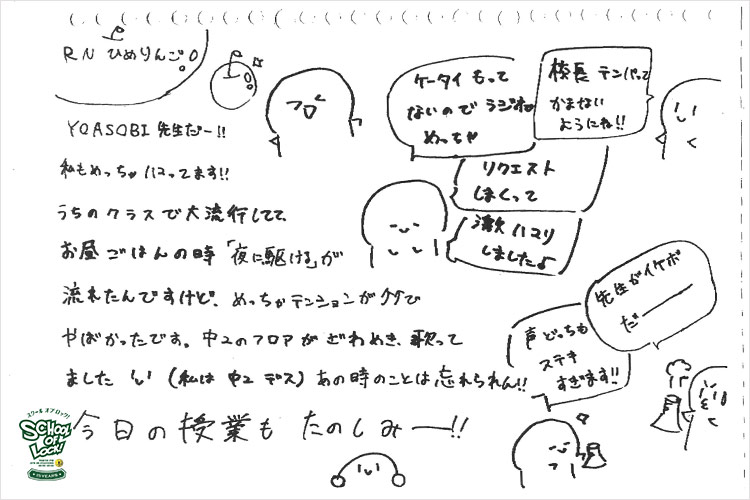 RN ひめりんご
YOASOBI 先生だー!!
私もめっちゃハマってます!!
うちのクラスで大流行してて、
お昼ごはんの時「夜に駆ける」が
流れたんですけど、めっちゃテンションがググで
やばかったです。中2のフロアがざわめき、歌って
ました (私は中2デス) あの時のことは忘れられん!!
今日の授業もたのしみー!!
ケータイもって
ないのでラジオで
めっちゃ
校長テンパって
かまない
ようにね!!
リクエスト
しまくって
激ハマり
しました♪
先生がイケボ
だー
声どっちも
ステキ
すぎます!!
スクール オブ ロック!
SCHOOL
OF
LOCK!
15 YEARS